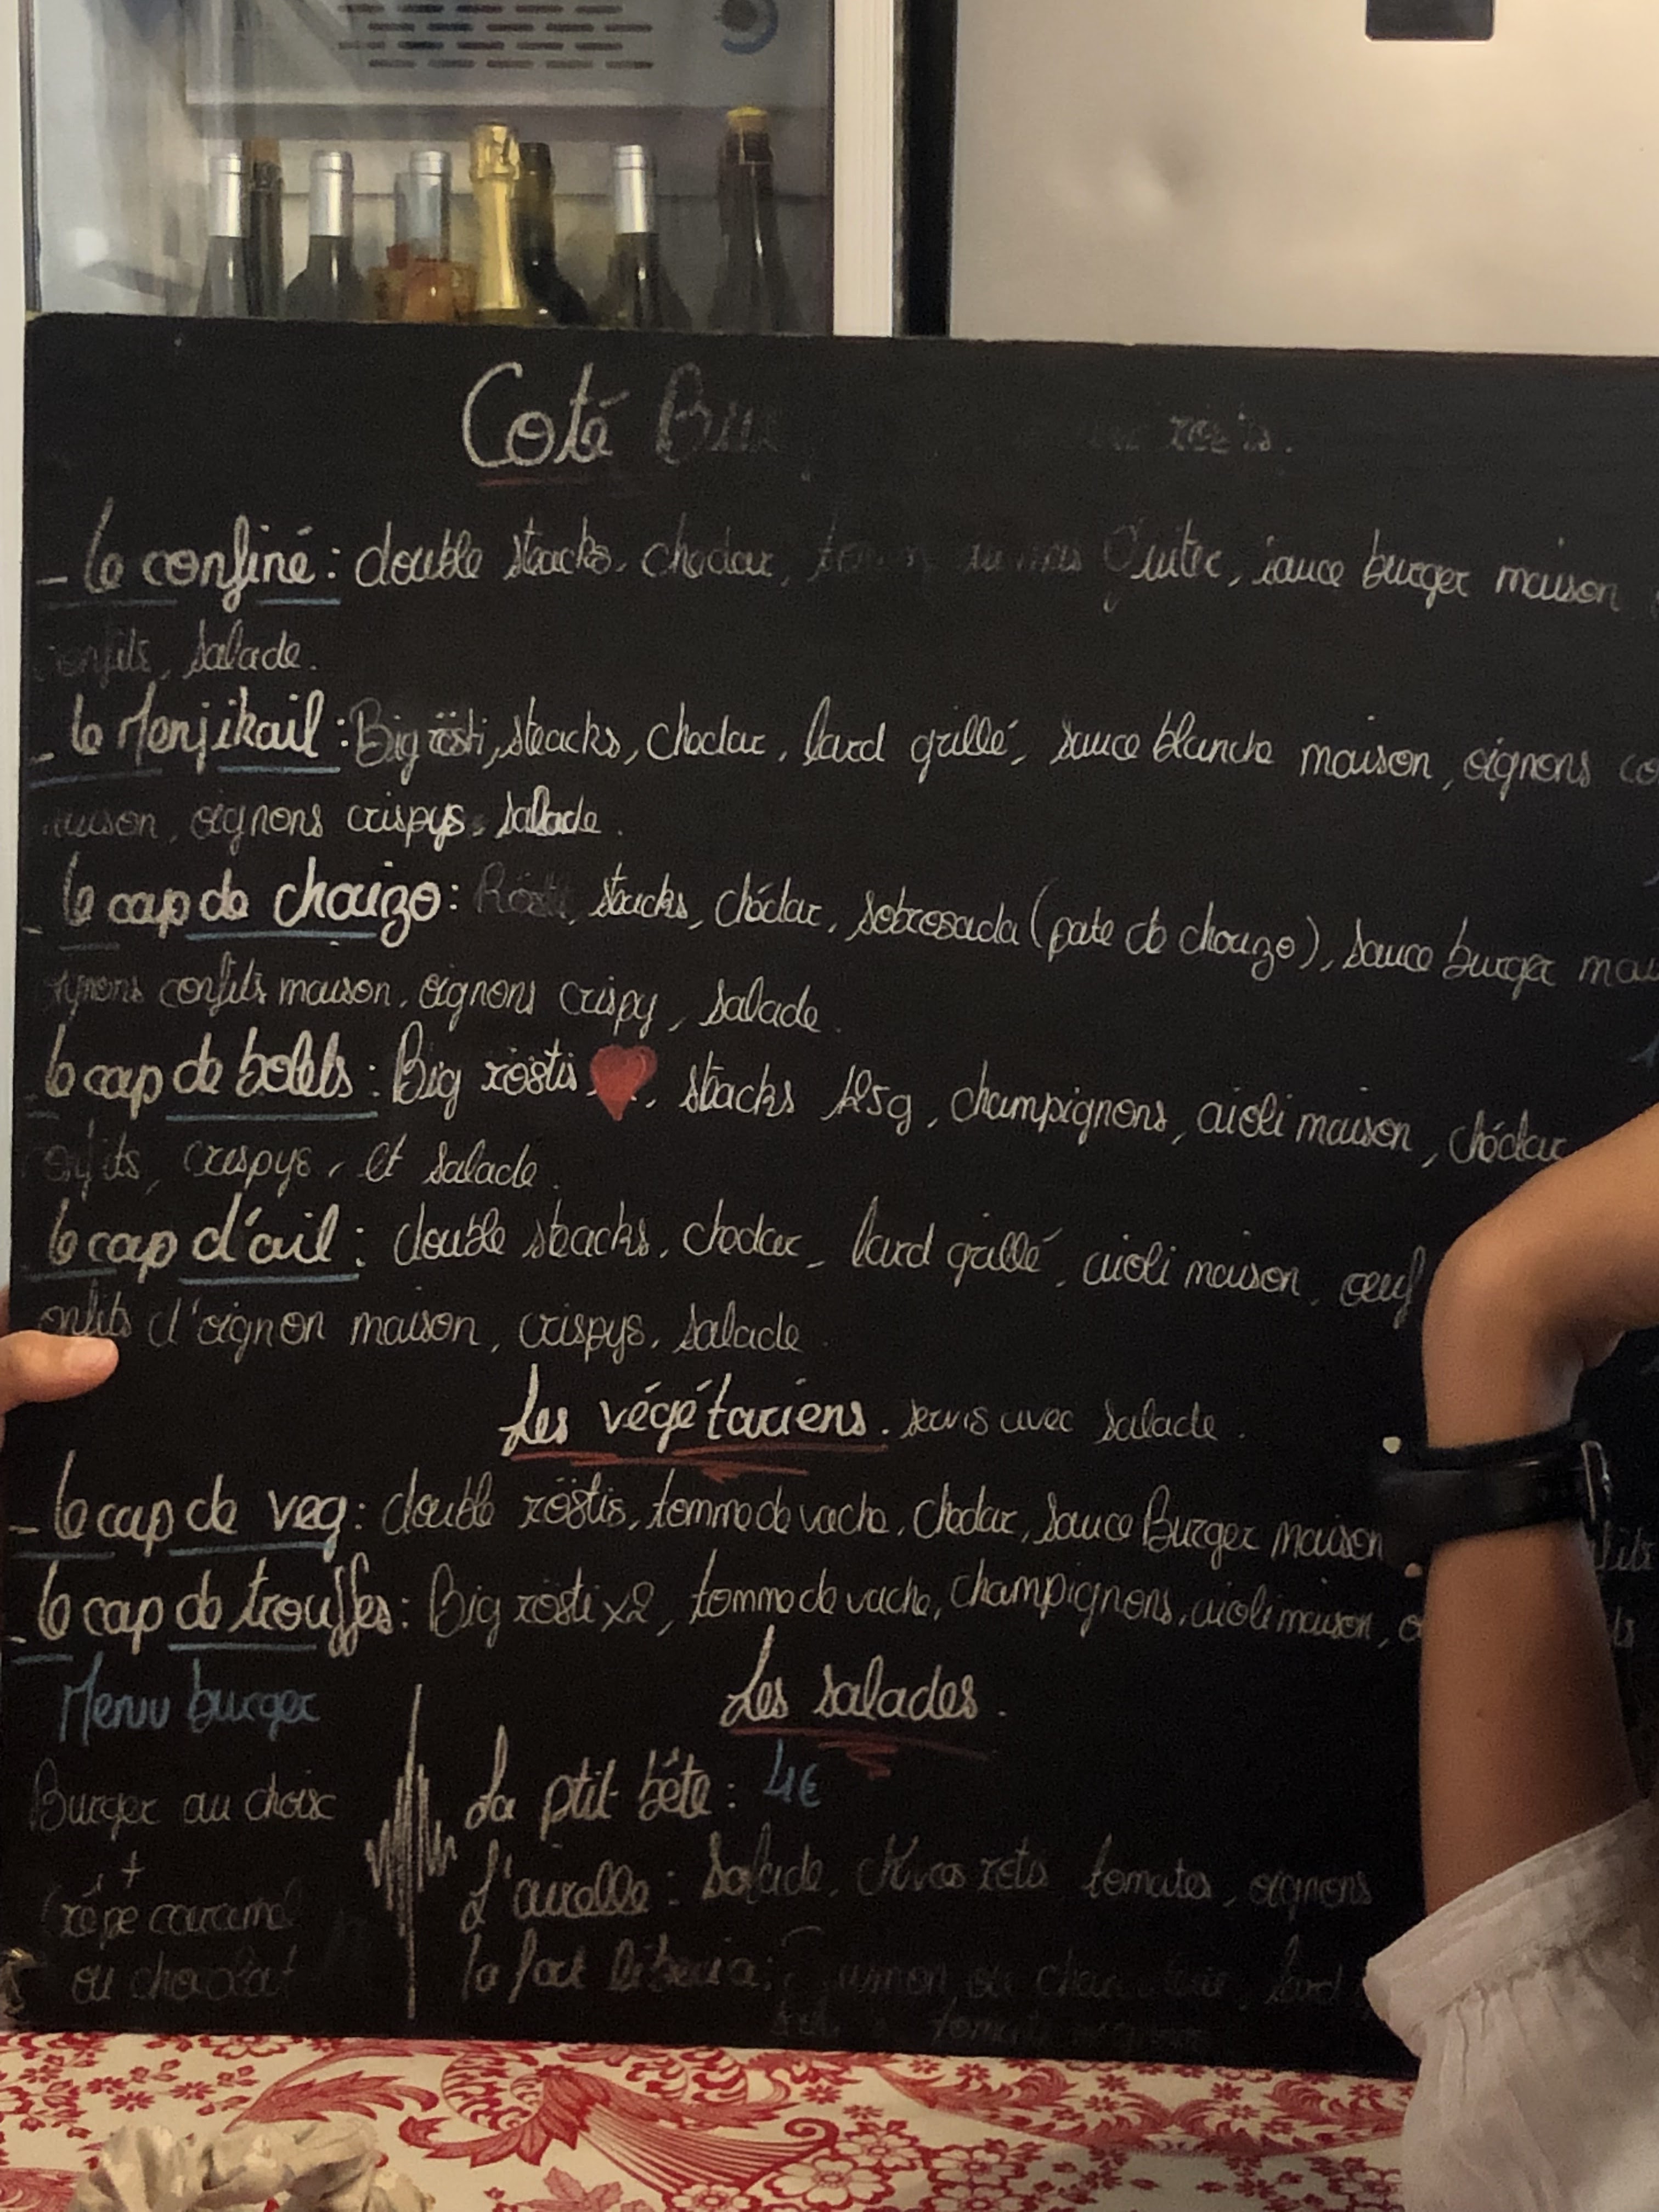 Coté
- le confiné: double steacks, chedar, sauce burger maison
confits, salade.
- le Menjikail: Big rösti, steacks, chedar, lard grillé, sauce blanche maison, oignons
maison, oignons crispys, salade.
- le cap de chorizo: Rösti, steacks, chédar, sobrosada (pate de chorizo), sauce burger
oignons confits maison, oignons crispy, salade.
le cap de bolets: Big röstis ❤, steacks 125g, champignons, aioli maison, chédar
confits, crispys, et salade.
le cap d'ail: double steacks, chedar, lard grillé, aioli maison, œuf
confits d'oignon maison, crispys, salade.
Les végétariens. servis avec salade.
- le cap de veg: double röstis, tomme de vache, chedar, sauce Burger maison
- le cap de trouffes: Big rösti x2, tomme de vache, champignons, aioli maison,
Menu burger
Burger au choix
+
Crêpe caramel
ou chocolat
Les salades.
La ptit bête: 4€
L'aurelle: Salade, tomates, oignons
lard